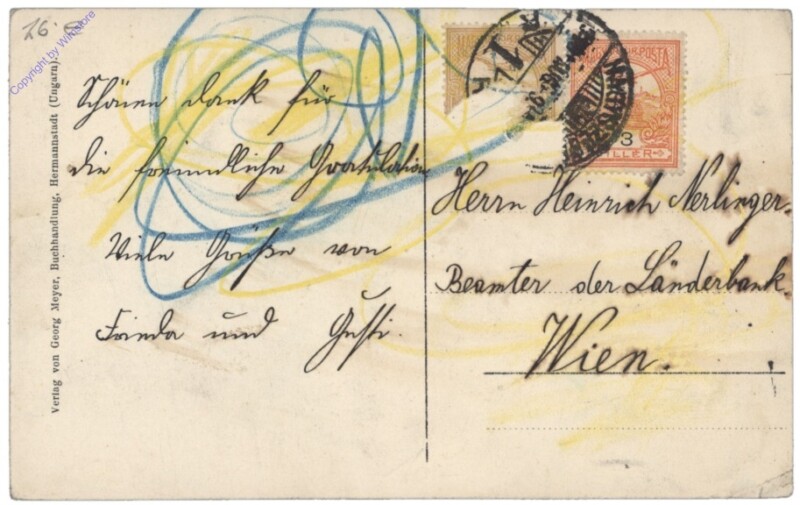 26
Copyright by Wikstore
Schönen Dank für
die freundliche Gratulation
Viele Grüße von
Frieda und Gusti.
Verlag von Georg Meyer, Buchhandlung, Hermannstadt (Ungarn).
3
FILLER
Herrn Heinrich Nerlinger
Beamter der Länderbank
Wien.